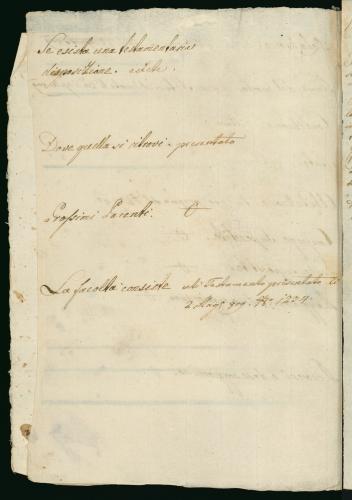 Se esista una testamentaria
disposizione. esiste.
Dove quella si ritrovi. presentato
Prossimi Parenti.
La facoltà consiste nel Testamento presentato
2 Mag. 809. N. 1224.